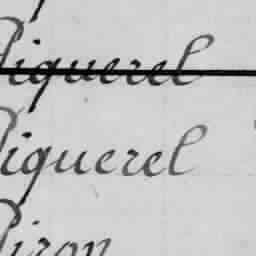 Piquerel
Piquerel
Piron